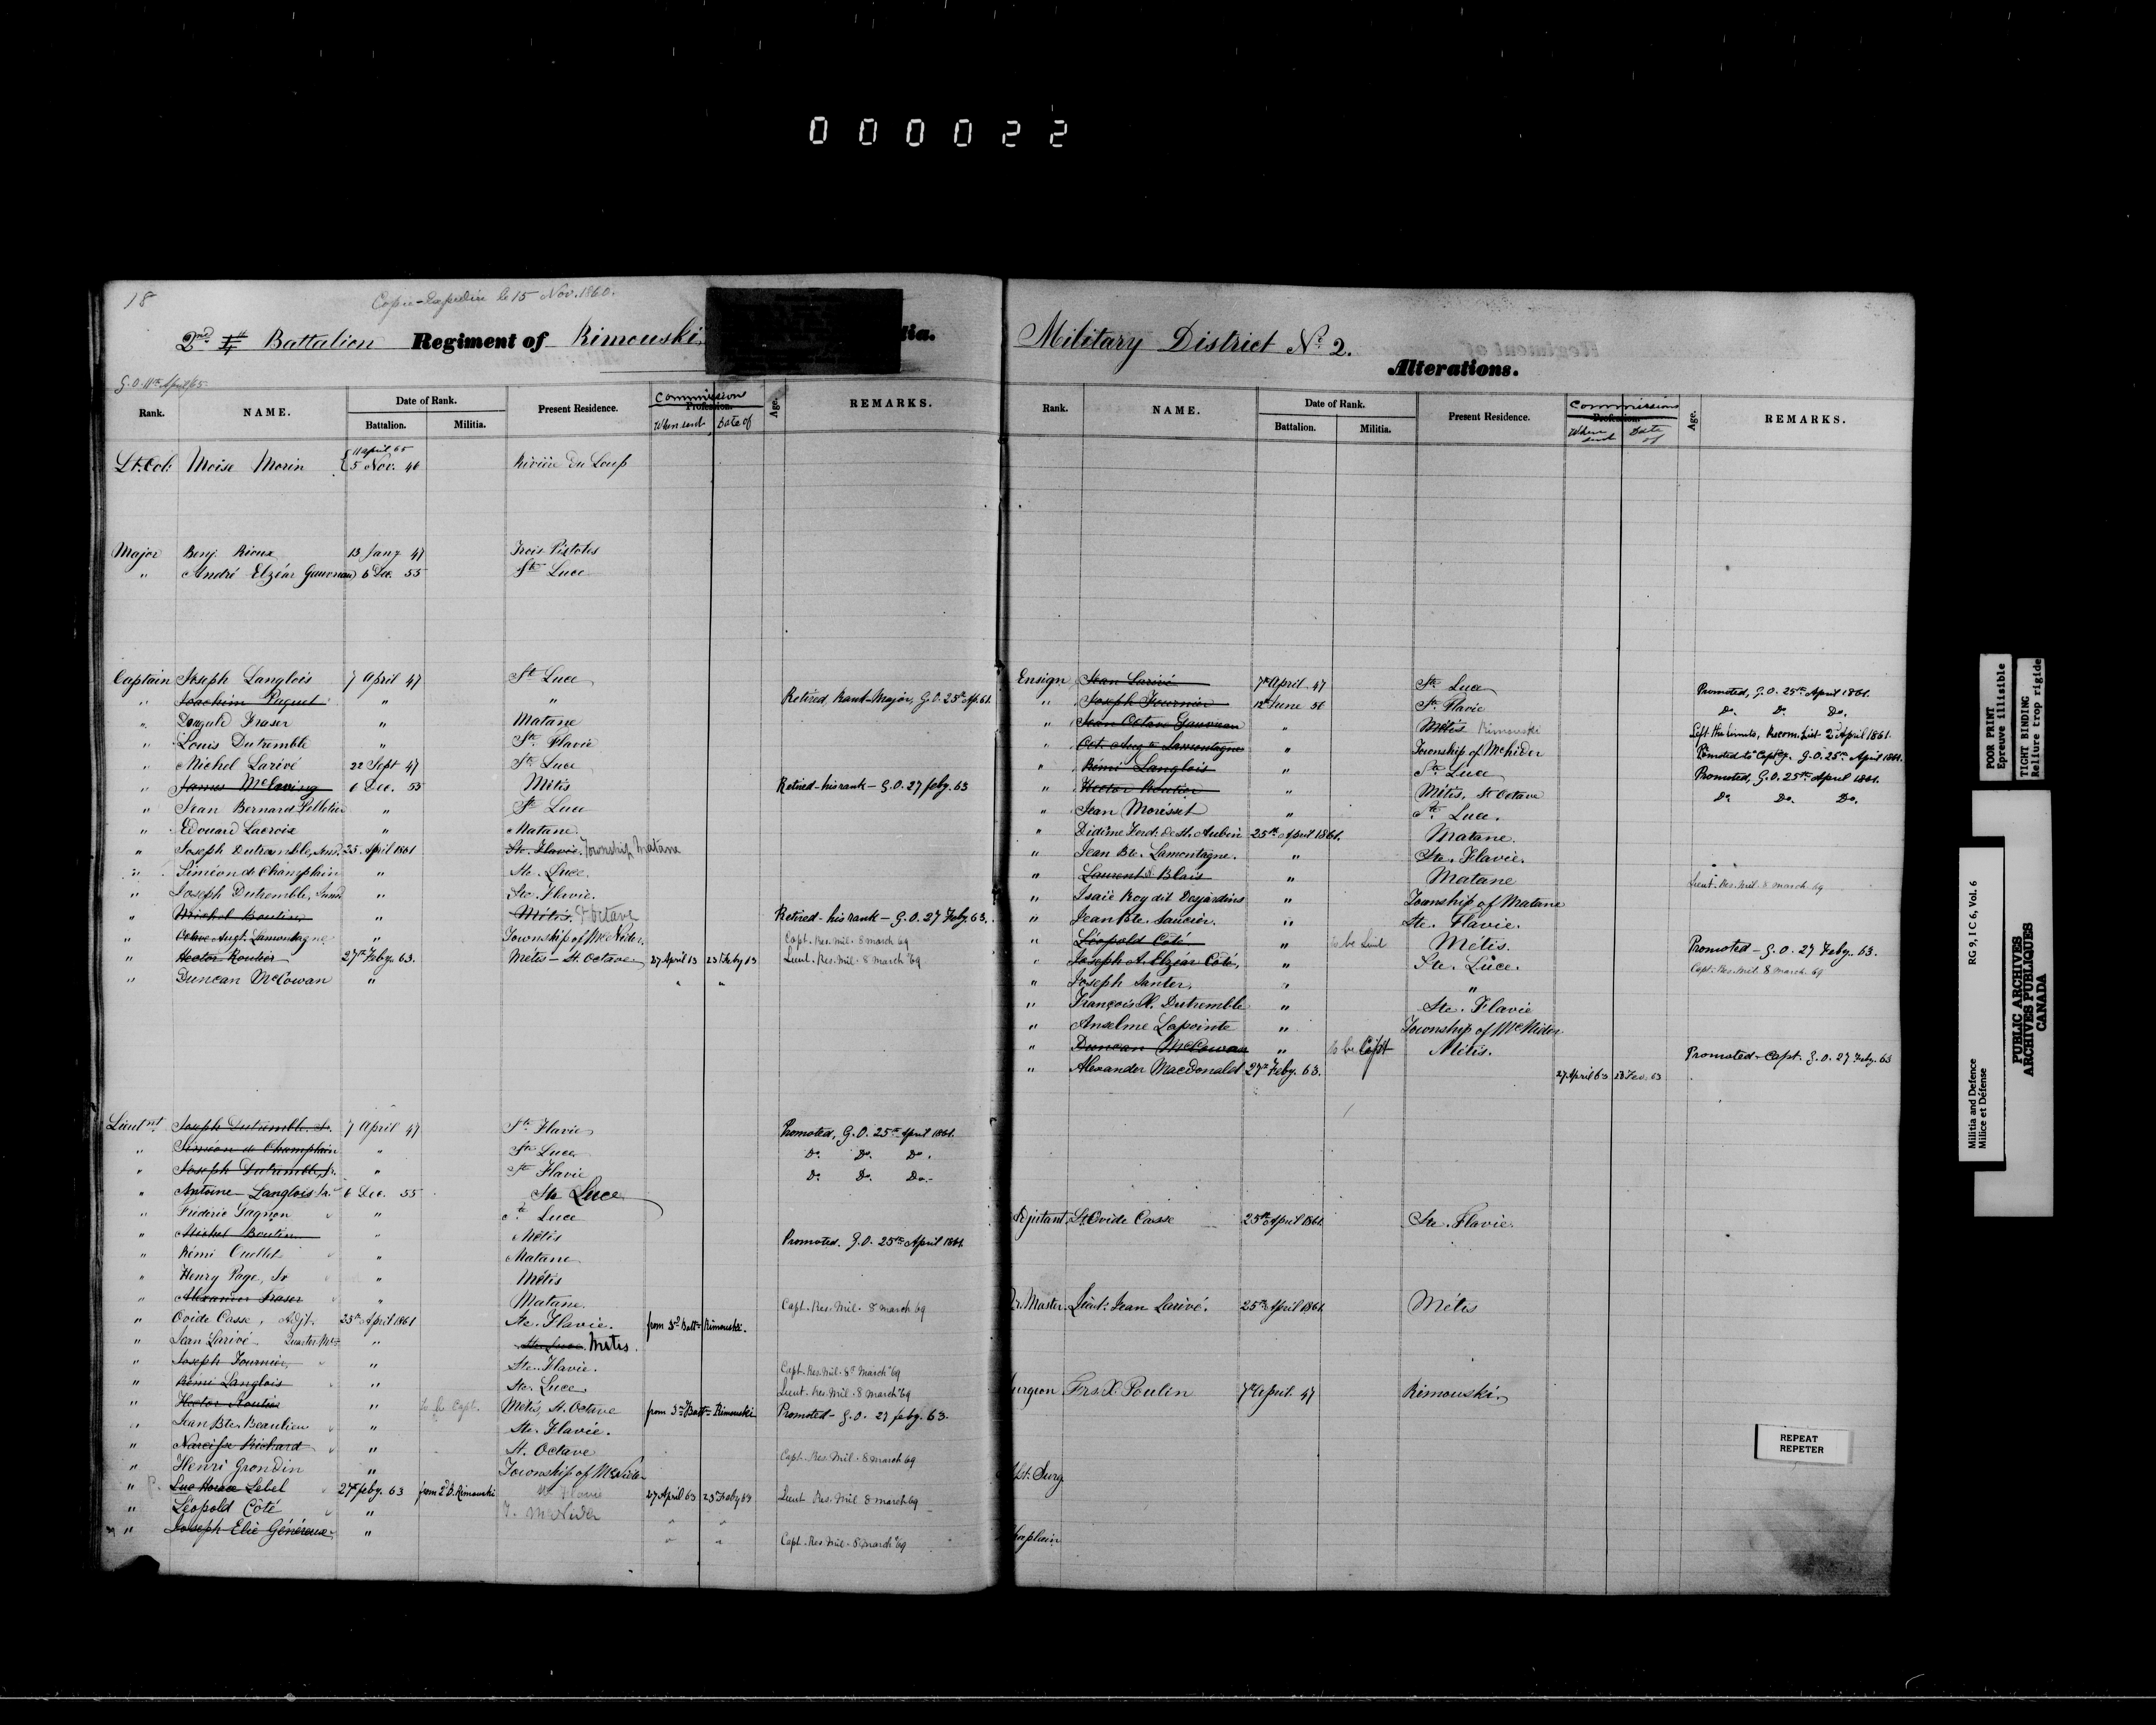 000022
18
Copie Expédiée le 15 Nov. 1860.
2nd Battalion Regiment of Rimouski,
tia.
G.O. 11th April/65
Rank. NAME. Date of Rank. Battalion. Militia. Present Residence. Commissions Profession. When sent Date of Age. REMARKS.
Lt. Col: Moise Morin 11 April 65 5 Nov. 46 Rivière du Loup
Major Benj. Rioux 13 Jany 47 Trois Pistoles
" André Elzéar Gauvreau 6 Dec. 55 Ste Luce
Captain Joseph Langlois 7 April 47 Ste Luce
" Joachim Paquet " " Retired, Rank-Major, G.O. 25th Ap. 61.
" Dougald Fraser " Matane
" Louis Dutremble " Ste Flavie
" Michel Larivé 22 Sept 47 Ste Luce
" James McLaving 6 Dec. 55 Métis Retired - his rank - G.O. 27 feby. 63
" Jean Bernard Pelletier " Ste Luce
" Edouard Lacroix " Matane
" Joseph Dutremble, Senr. 25. April 1861 Ste. Flavie. Township Matane
" Siméon de Champlain " Ste. Luce.
" Joseph Dutremble, Junr " Ste. Flavie.
" Michel Boutin " Métis. St Octave Retired - his rank - G.O. 27 Feby. 63.
" Octave Augt. Lamontagne " Township of McNider. Capt. Res. Mil. 8 march 69
" Hector Routier 27th Feby. 63. Métis - St. Octave 27 April 63 23 Feby 63 Lieut. Res. Mil. 8 March '69
" Duncan McCowan " " "
Lieutnt Joseph Dutremble, Sr. 7 April 47 Ste Flavie Promoted, G.O. 25th April 1861.
" Siméon de Champlain " Ste Luce Do. Do. Do.
" Joseph Dutremble, Jr. " Ste Flavie Do. Do. Do.
" Antoine Langlois Sr. 6 Dec. 55 Ste Luce
" Fréderic Gagnon " Ste Luce
" Michel Boutin " Métis Promoted. G.O. 25th April 1861.
" Rémi Ouellet " Matane
" Henry Page, Sr " Métis
" Alexander Fraser " Matane. Capt. Res. Mil. 8 march 69
" Ovide Casse, Adjt. 25th April 1861 Ste. Flavie. from 3d Battn Rimouski.
" Jean Larivé Quarter Mr " Ste. Luce Métis.
" Joseph Fournier, " Ste. Flavie. Capt. Res. Mil. 8th March '69
" Rémi Langlois " Ste. Luce Lieut. Res. Mil. 8 march '69
" Hector Routier " to be Capt. Métis, St. Octave from 3rd Battn Rimouski Promoted - G.O. 27 feby. 63.
" Jean Bte. Beaulieu " Ste. Flavie.
" Narcisse Richard " St. Octave Capt. Res. Mil. 8 march 69
" Henri Grondin " Township of McNider
" Luc Horace Lebel 27th feby. 63 from 2d B. Rimouski Ste Flavie 27 April 63 23 Feby 63 Lieut Res. Mil. 8 march 69
" Léopold Côté " T. McNider " "
" Joseph Elie Généreux " " " Capt. Res. Mil. 8 march '69
Military District No. 2.
Alterations.
Rank. NAME. Date of Rank. Battalion. Militia. Present Residence. Commissions Profession. When sent Date of Age. REMARKS.
Ensign Jean Larivé 7th April 47 Ste Luce Promoted, G.O. 25th April 1861.
" Joseph Fournier 12 June 56 Ste Flavie Do. Do. Do.
" Jean Octave Gauvreau " Métis Rimouski Left the limits, Recom. List 2 April 1861.
" Oct. Augte Lamontagne " Township of McNider Promoted to Captcy. G.O. 25th April 1861.
" Rémi Langlois " Ste Luce Promoted, G.O. 25th April 1861.
" Hector Routier " Métis, St Octave Do. Do. Do.
" Jean Morisset " Ste Luce.
" Didime Ferd. de St. Aubin 25th April 1861. Matane.
" Jean Bte. Lamontagne. " Ste. Flavie.
" Laurent Blais " Matane Lieut. Res. Mil. 8 march 69
" Isaïe Roy dit Desjardins " Township of Matane
" Jean Bte. Saucier. " Ste. Flavie.
" Léopold Coté " to be Lieut Métis. Promoted - G.O. 27 Feby. 63.
" Joseph A. Elzéar Coté, " Ste. Luce. Capt. Res. Mil. 8 march 69
" Joseph Santer, " "
" François X. Dutremble " Ste. Flavie
" Anselme Lapointe " Township of McNider
" Duncan McCowan " to be Capt Métis. Promoted - Capt. G.O. 27 Feby. 63
" Alexander MacDonald 27th Feby. 63. 27 April 63 23 Feb. 63
djutant, Lt. Ovide Casse 25th April 1861 Ste. Flavie.
r. Master. Lieut: Jean Larivé. 25th April 1861. Métis
urgeon Frs. X. Poulin 7th April. 47 Rimouski.
sst. Surg.
haplain
POOR PRINT
Epreuve illisible
TIGHT BINDING
Reliure trop rigide
Militia and Defence RG 9, I C 6, Vol. 6
Milice et Défense
PUBLIC ARCHIVES
ARCHIVES PUBLIQUES
CANADA
REPEAT
REPETER